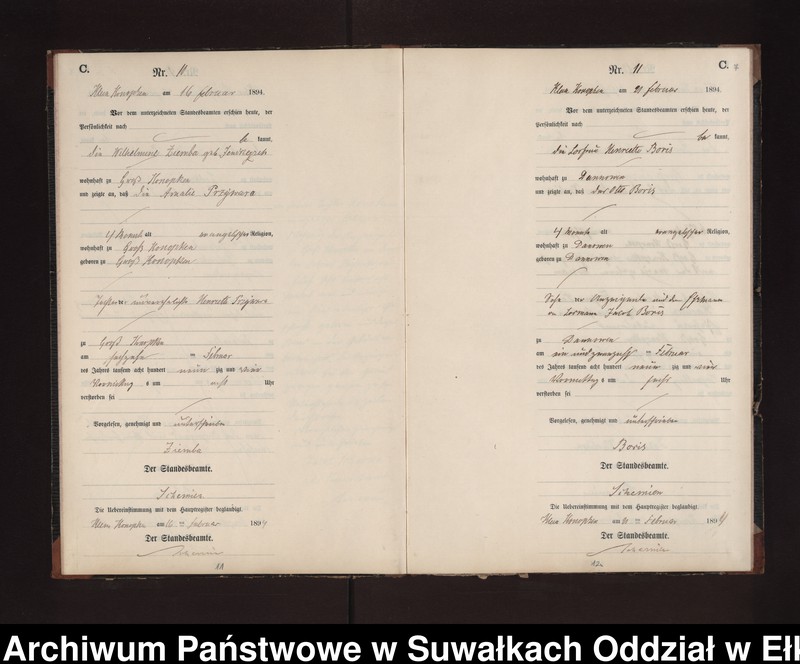 C.
Nr. 11
Klein Konopken am 16 Februar 1894.
Vor dem unterzeichneten Standesbeamten erschien heute, der
Persönlichkeit nach
be kannt,
die Wilhelmine Ziemba geb.
wohnhaft zu Groß Konopken
und zeigte an, daß die Amalie Przywara
4 Monate alt evangelischer Religion,
wohnhaft zu Groß Konopken
geboren zu Groß Konopken
Tochter der unverehelichten Henriette Przywara
zu Groß Konopken
am sechzehn ten Februar
des Jahres tausend acht hundert neun zig und vier
Vormittag s um acht Uhr
verstorben sei
Vorgelesen, genehmigt und unterschrieben
Ziemba
Der Standesbeamte.
Die Uebereinstimmung mit dem Hauptregister beglaubigt.
Klein Konopken am 16 ten Februar 1894
Der Standesbeamte.
11
C.
Nr. 11
Klein Konopken am 21 Februar 1894.
Vor dem unterzeichneten Standesbeamten erschien heute, der
Persönlichkeit nach
be kannt,
die Henriette Boris
wohnhaft zu Dannowen
und zeigte an, daß der Otto Boris
4 Monate alt evangelischer Religion,
wohnhaft zu Dannowen
geboren zu Dannowen
Sohn der Anzeigenden und dem Ehemann
Jacob Boris
zu Dannowen
am ein und zwanzigsten Februar
des Jahres tausend acht hundert neun zig und vier
Vormittag s um sechs Uhr
verstorben sei
Vorgelesen, genehmigt und unterschrieben
Boris
Der Standesbeamte.
Die Uebereinstimmung mit dem Hauptregister beglaubigt.
Klein Konopken am ten Februar 1894
Der Standesbeamte.
12
Archiwum Państwowe w Suwałkach Oddział w Ełk